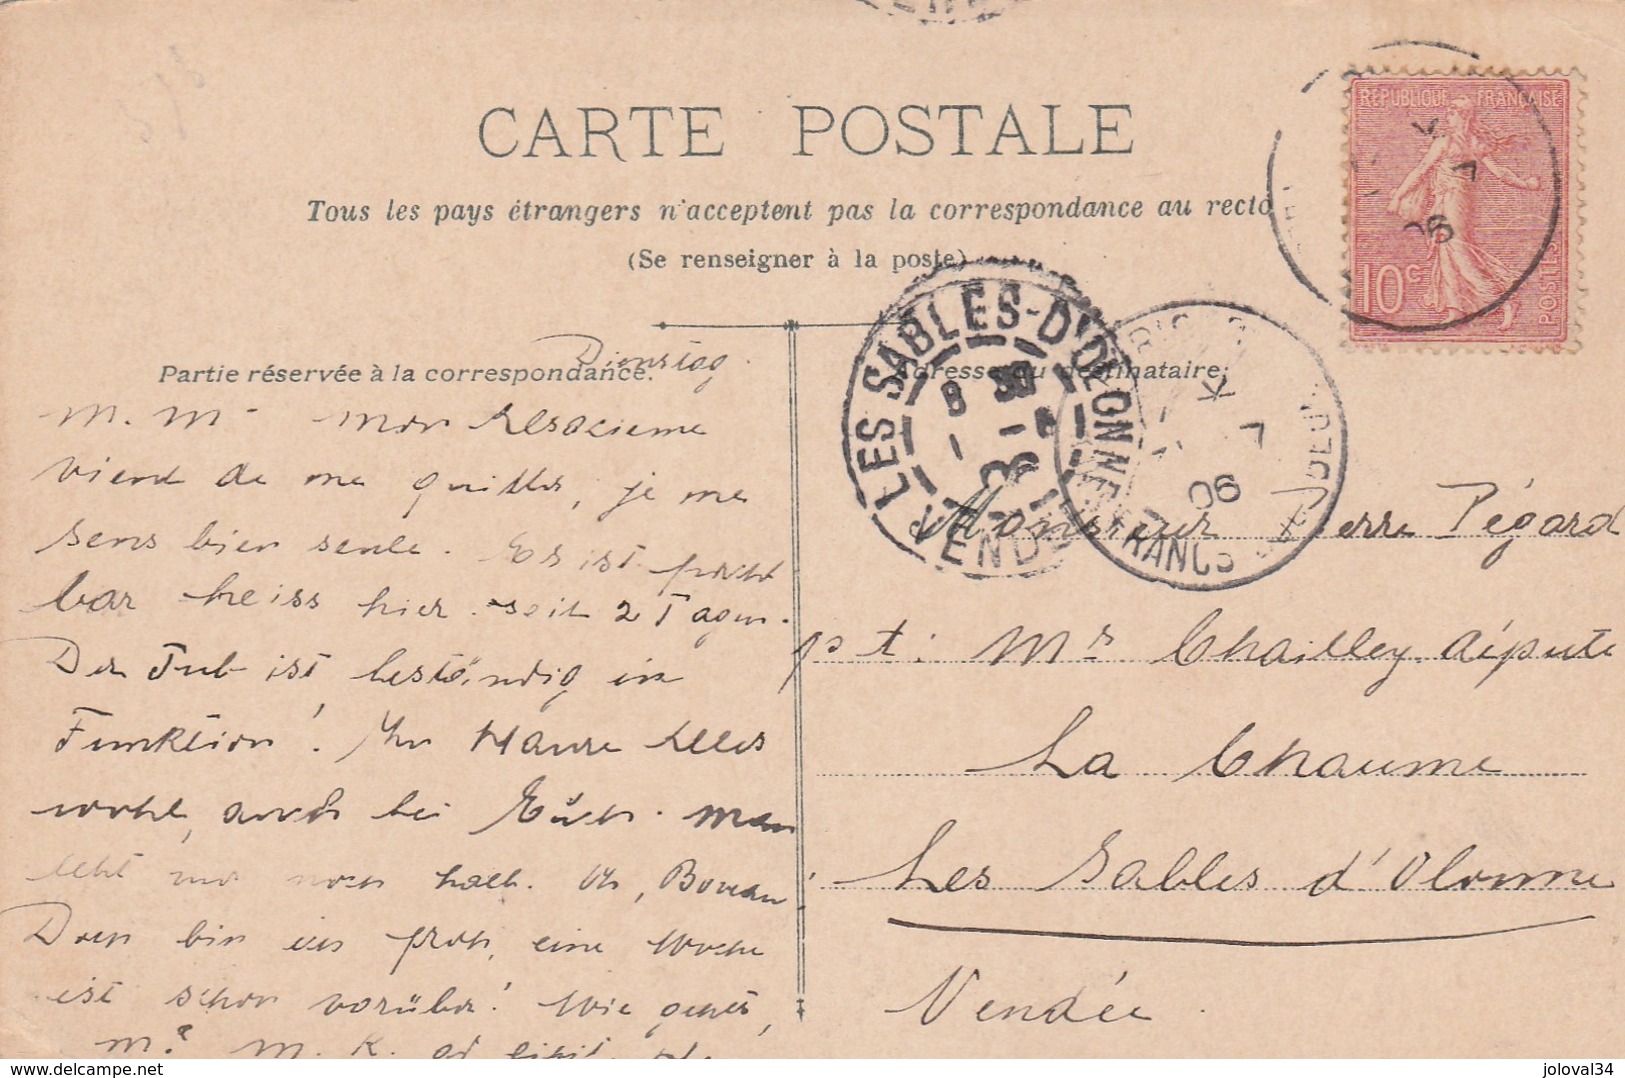 CARTE POSTALE
Tous les pays étrangers n'acceptent pas la correspondance au recto
(Se renseigner à la poste)
REPUBLIQUE FRANÇAISE
10c
POSTES
06
LES SABLES-D'OLONNE
8 30
VENDÉE
06
Partie réservée à la correspondance.
Adresse du destinataire.
Dienstag.
M. M mon Alsacienne
vient de me quitter, je me
sens bien seule. Es ist furcht
bar heiss hier seit 2 Tagen.
Der Tub ist beständig in
Funktion! Im Hause Alles
wohl, auch bei Euch. Man
lebt nur noch halb. Uh, Boucau
Doch bin ich froh, eine Woche
ist schon vorüber! Wie geht's,
M? M. K.
Monsieur Pierre Pégard
pst: Mr Chailley député
La Chaume
Les Sables d'Olonne
Vendée.
delcampe.net
joloval34